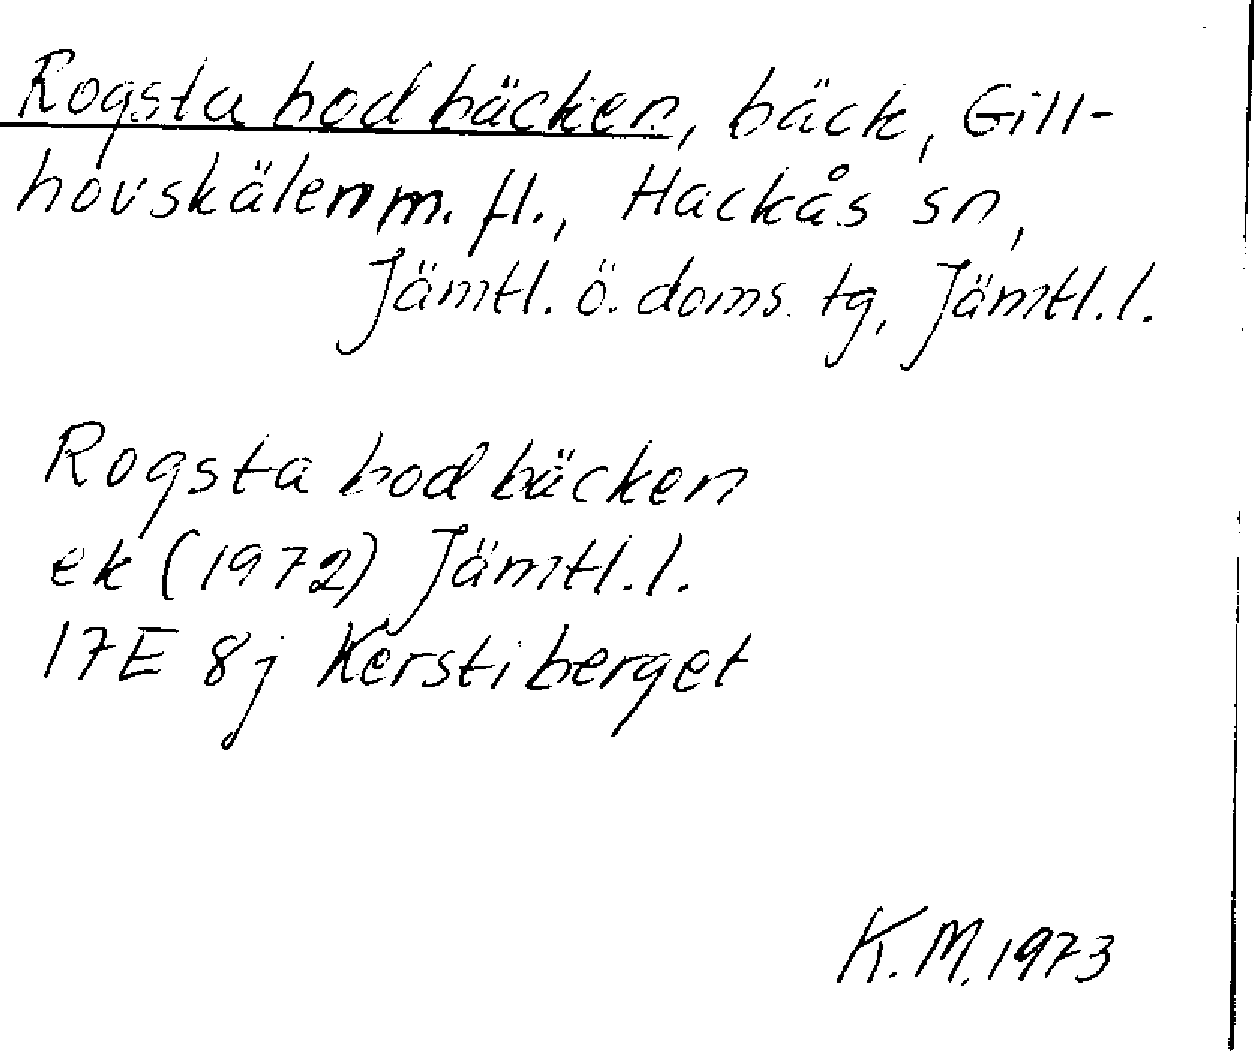 Rogstabodbäcken, bäck, Gill-
hovskälen m. fl., Hackås sn,
Jämtl. ö. doms. tg, Jämtl. l.
Rogstabodbäcken
ek (1972) Jämtl. l.
17E 8j Kerstiberget
K.M. 1973